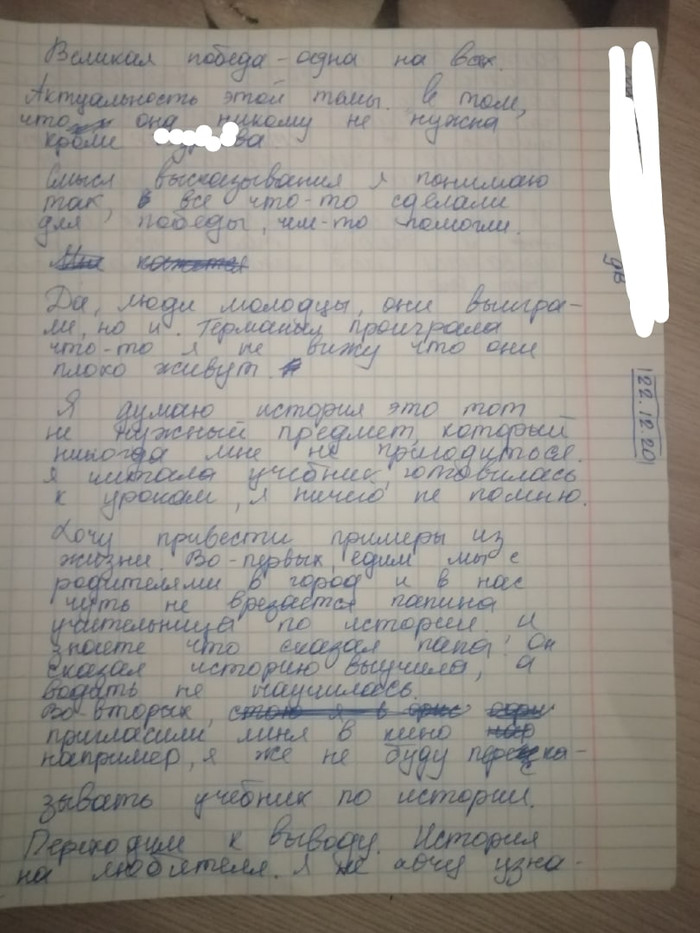 Великая победа - одна на всех.
Актуальность этой темы. в том,
что она никому не нужна
кроме ва
Смысл высказывания я понимаю
так, в все что-то сделали
для победы, чем-то помогли.
Да, люди молодцы, они выигра-
ли, но и. Германия проиграла
что-то я не вижу что они
плохо живут.
Я думаю история это тот
не нужный предмет, который
никогда мне не пригодиться.
Я читала учебник, готовилась
к урокам, я ничего не помню.
Хочу привести примеры из
жизни. Во-первых, едим мы с
родителями в город и в нас
чуть не врезается папина
учительница по истории. и
знаете что сказал папа! Он
сказал историю выучила, а
водить не научилась.
Во-вторых,
пригласили миня в кино
например, я же не буду переска-
зывать учебник по истории.
Переходим к выводу. История
на любителя. Я не хочу узна-
22.12.20